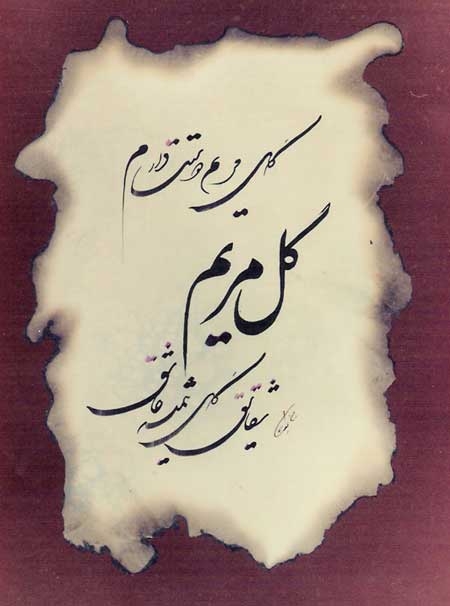 گلهای مریم دوستت دارم
گل مریم
شقایق گلهای همیشه عاشق